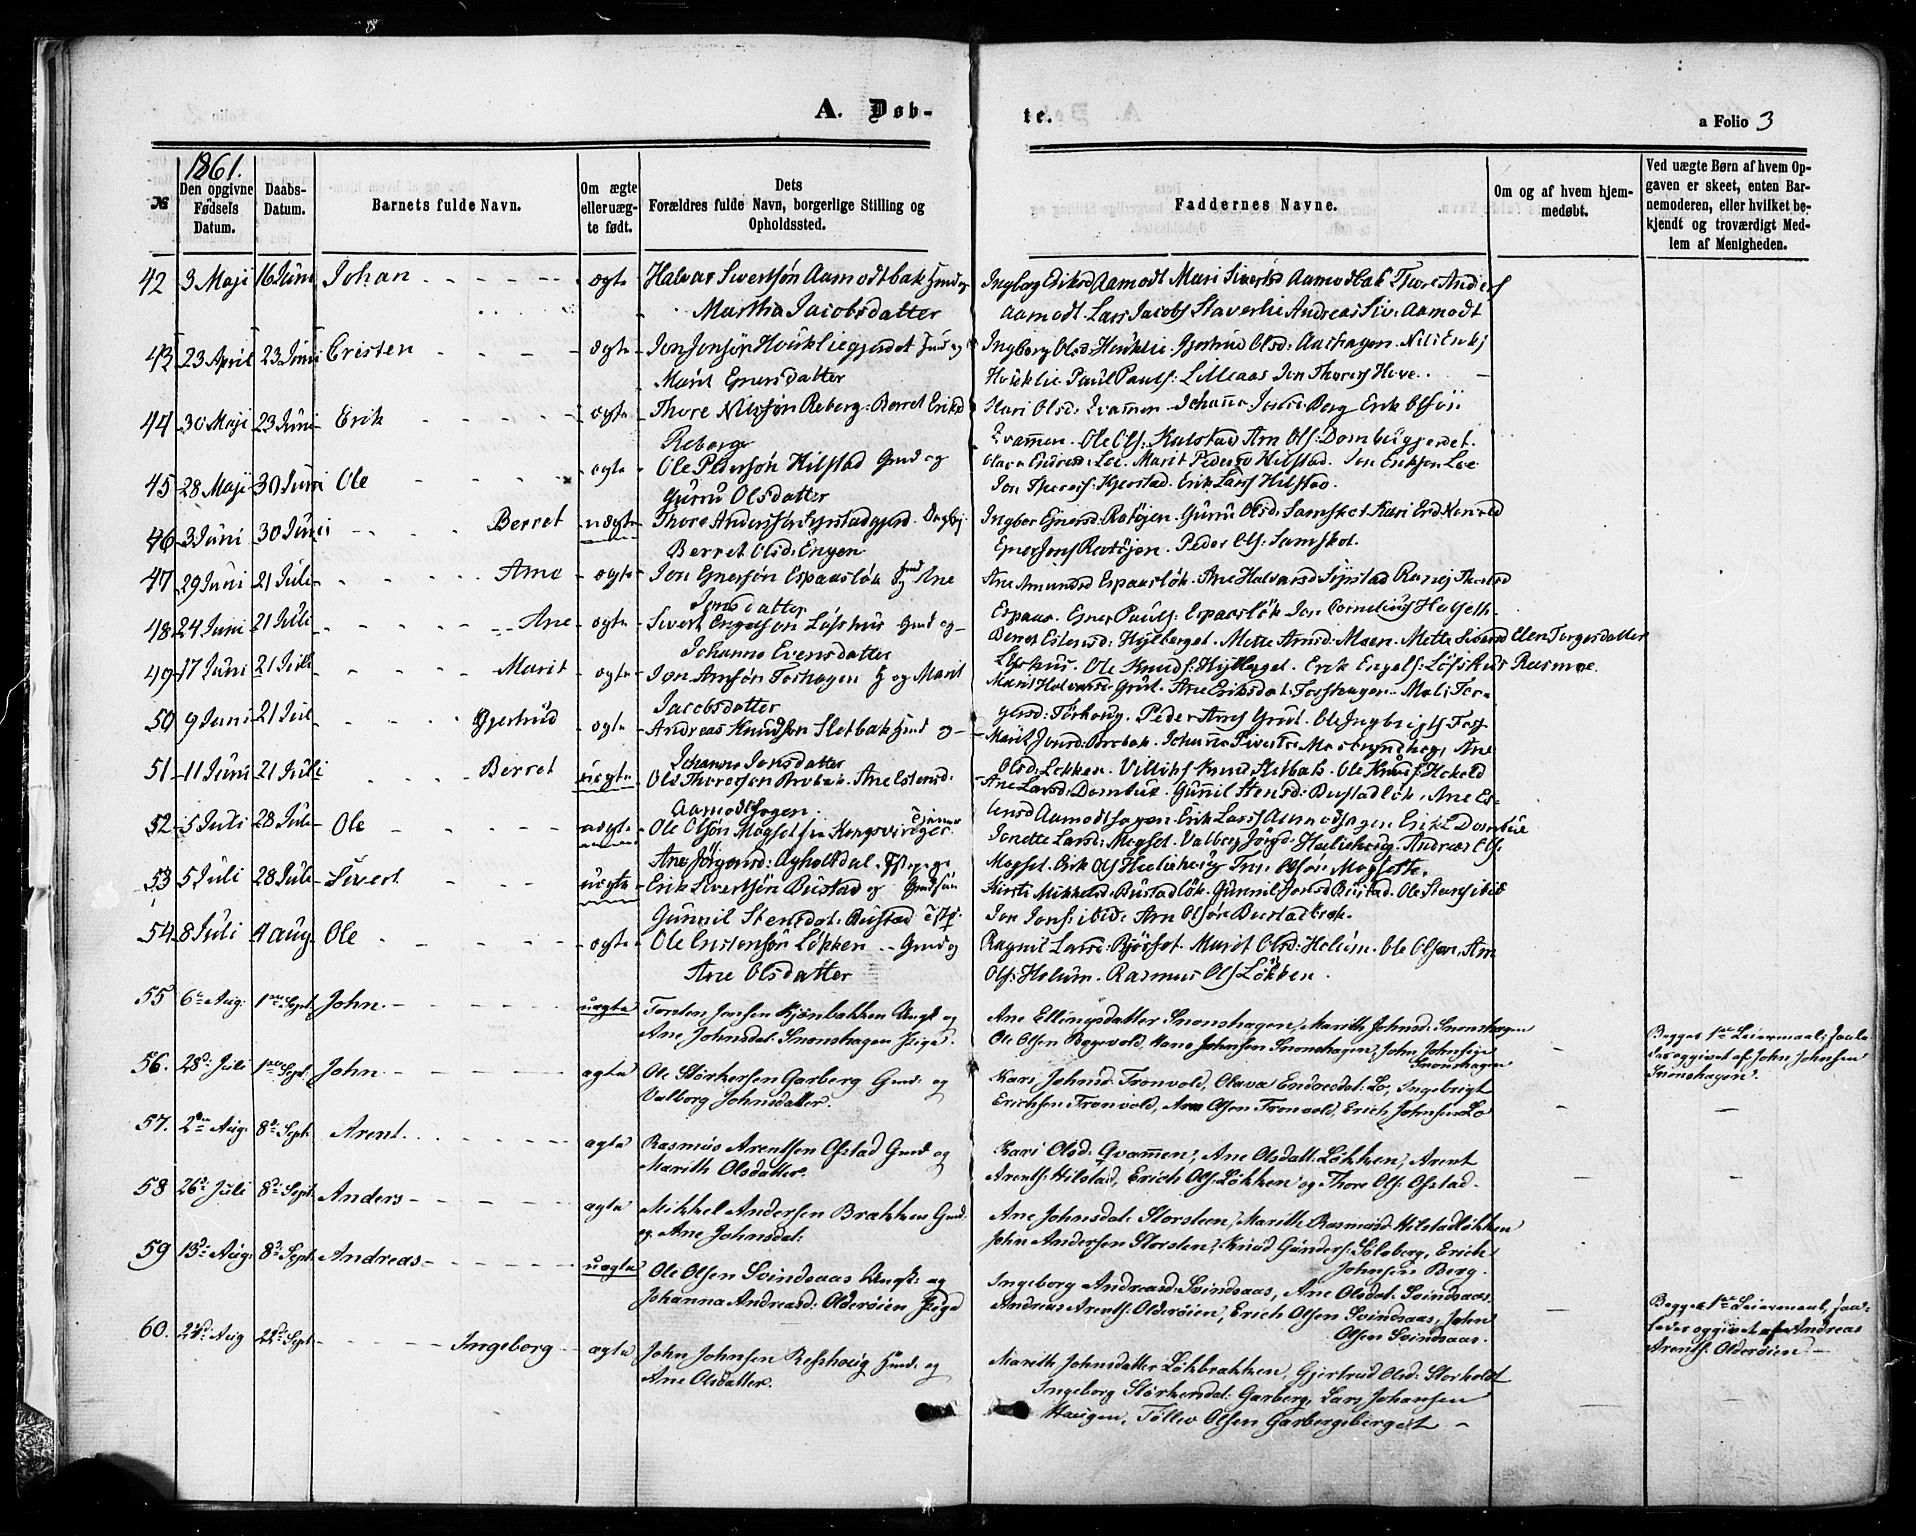 A. Døb-
te.
a Folio 3
1861.
№
Den opgivne Fødsels Datum.
Daabs-Datum.
Barnets fulde Navn.
Om ægte eller uægte født.
Dets Forældres fulde Navn, borgerlige Stilling og Opholdssted.
Faddernes Navne.
Om og af hvem hjemmedøbt.
Ved uægte Børn af hvem Opgaven er skeet, enten Barnemoderen, eller hvilket bekjendt og troværdigt Medlem af Menigheden.
42 3 Maji 16 Juni Johan ægte Halvar Sivertsøn Aamodtbak Gmd og
Martha Jacobsdatter
Ingborg Eriksd Aamodt Mari Sivertsd Aamodbak Thore Anders
Aamodt Lars Jacobs Staverlie Andreas Siv: Aamodt
43 23 April 23 Juni Cristen ægte Jon Jonsøn Hviklie gjerdet Gmd og
Marit Ejnersdatter
Ingborg Olsd: Gjertrud Olsd: Aashagen. Nils
Paul Pauls: Lilleaas Jon Thores Hove.
44 30 Maji 23 Juni Erik ægte Thore Nilssøn Reberg: Berret Eriksd
Reberg
Mari Olsd: Qvammen. Johanna Berg Erik Olsøn
Qvammen. Ole Ols: Kalstad Arn Ols: Dombugjerdet.
45 28 Maji 30 Juni Ole ægte Ole Pedersøn Hilstad Gmd og
Gurru Olsdatter
Olava Endresd: Loe. Marit Pedersd Hilstad. Jon Eriksen Loe
Jon Thores: Kjerstad. Erik Lars Hilstad.
46 3 Juni 30 Juni Berret uægte Thore Andersøn
Berret Olsd: Engen
Ingbor Ejnersd: Rotøjen. Gurru Olsd: Samskot Kari
Ejner Jons Rotøjen. Peder Ols: Samskot.
47 29 Juni 21 Juli Arne ægte Jon Ejnersøn Espaasløk Gmd og Ane
Jonsdatter
Ane Amundsd Espaasløk. Ane Halvarsd
Espaas. Ejner Pauls: Espaasløk Jon Cornelius Halseth
48 24 Juni 21 Juli Ane ægte Sivert Engelsøn Løfshus Gmd og
Johanna Evensdatter
Berret Estensd: Hylberget. Mette Arnsd: Moen. Mette Sivertsd Elen Torgersdatter
Løfshus. Ole Knuds: Erik Engels: Løfshus Rasmoe.
49 17 Juni 21 Juli Marit ægte Jon Arnsøn Forshagen G og Marit
Jacobsdatter
Marit Halvarsd: Grut. Ane Eriksdat: Forshagen. Mali Tor-
gersd: Torhoug. Peder Arns Grut. Ole Ingbrigts
50 9 Juni 21 Jul Gjertrud ægte Andreas Knudsøn Sletbak Gmd og
Johanna Jonsdatter
Marit Jonsd: Brobak. Ane
Olsd: Løkken. Knud Sletbak. Ole
51 11 Juni 21 Juli Berret uægte Ole Thoresen Brobak. Ane Estensd:
Aamodthagen.
Ane Larsd: Dombue. Gunnil Stensd: Bustadløk. Ane Es-
tensd Aamodthagen Erik Lars Aamodhagen Erik L Dombue
52 5 Juli 28 Juli Ole uægte Ole Olsøn Mogset fra Kongsvinger.
Ane Jørgensd: Tjpige
Jonette Larsd: Mogset. Valborg Jørgd: Andreas Ols
Mogset. Erik Ols
53 5 Juli 28 Juli Sivert uægte Erik Sivertsøn Bustad og Gmdsøn
Gunnil Stensdat: Bustad
Kirsti Mikkelsd: Bustadløk. Gunnil Jonsd Bustad. Ole Stens ibid
Jon Jons: ibid: Arn Olsøn Bustadbrok.
54 8 Juli 4 Aug Ole ægte Ole Cristensøn Løkken Gmd og
Ane Olsdatter
Ragnil Larsd: Bjørset. Marit Olsd: Helium. Ole Olsen, Arn
Ols: Helium. Rasmus Ols Løkken.
55 6te Aug: 1ste Sept: John. uægte Torsten Jonsen Kjønbakken Ungk og
Ane Johnsdat: Snoeshagen Pige
Ane Ellingsdatter Snoeshagen, Marith Johnsd: Snoeshagen
Ole Olsen Bagevold, Hans Johnsen Snoeshagen, John Johnsen
Snoeshagen
Begges 1ste Leiermaal; Faa-
der opgivet af John Johnsen
Snoeshagen.
56. 28de Juli 1ste Sept John ægte Ole Størkersen Garberg Gmd: og
Valborg Johnsdatter.
Kari Johnsd: Tronvold, Olava Endresdat: Lo, Ingebrigt
Erichsen Tronvold, Arn Olsen Tronvold, Erich Johnsen Lo
57. 2den Aug. 8de Sept. Arent. ægte Rasmus Arentsen Ofstad Gmd og
Marith Olsdatter.
Kari Olsd: Qvammen, Ane Olsdatt: Løkken, Arent
Arents: Hilstad, Erich Ols: Løkken og Thore Ols: Ofstad.
58 26de Juli 8de Sept. Anders ægte Mikkel Andersen Brakken Gmd.
og Ane Johnsdat:
Ane Johnsdat: Storsteen, Marith Rasmusd Hilstadløkken
John Andersen Storsten, Knud Gunders: Solsberg, Erich
Johnsen Berg.
59 13de Aug: 8de Sept: Andreas uægte Ole Olsen Svindsaas Ungk: og
Johanna Andreasd: Olderøien Pige
Ingeborg Andreasd: Svindsaas, Ane Olsdat: Svindsaas,
Andreas Arents: Olderøien, Erich Olsen Svindsaas, John
Olsen Svindsaas.
Begges 1ste Leiermaal, Faa-
feder opgivet af Andreas
Arents: Olderøien
60. 24de Aug 22de Sept: Ingeborg ægte John Johnsen Refshoug Gmd. og
Ane Olsdatter.
Marith Johnsdatter Løkbrakken, Gjertrud Olsd: Storholdt
Ingeborg Størkersdat: Garberg, Lars Johansen
Haugen, Tollev Olsen Garbergsberget